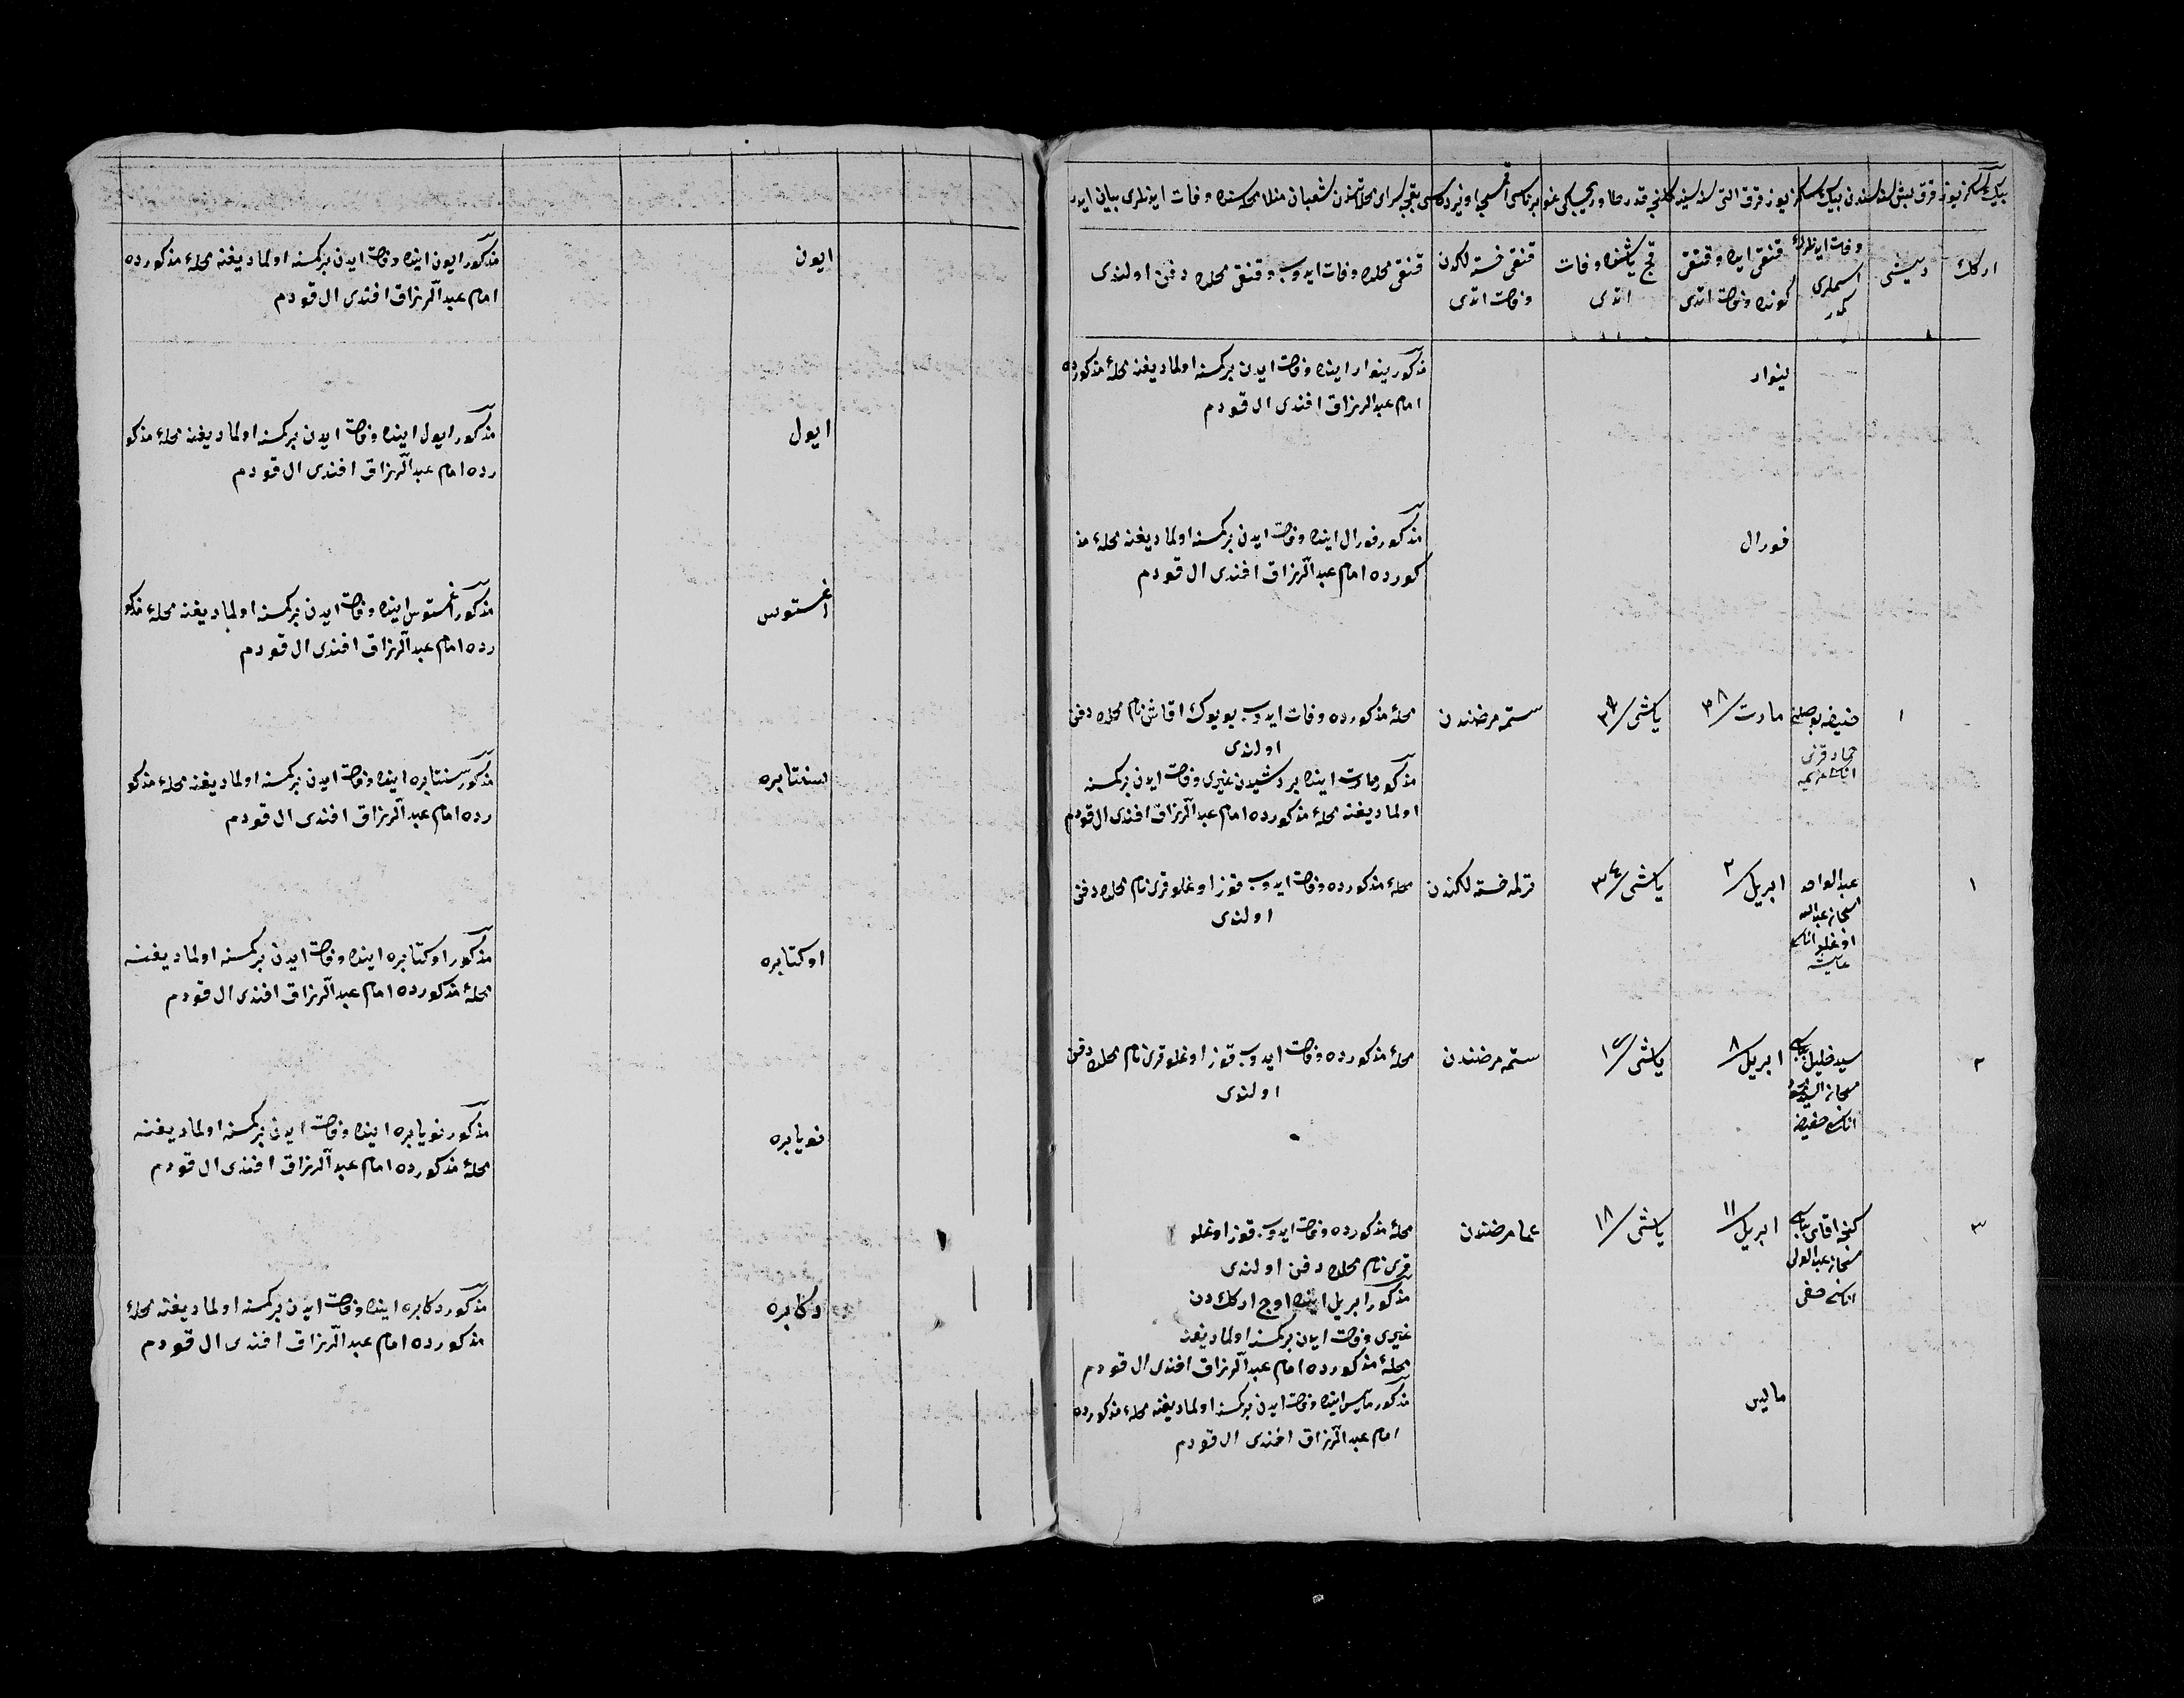 بيك سكز يوز قرق بش سنه سندن بيك سكز يوز قرق التى سنه سينه كلنجى قدر باغچه سراى محله سندن شعبان منلا محله سنده وفات ايدنلرى بيان ايدر
اركك
ديشى
وفات ايدنلرك اسملرى كمدر
قنقى ايده و قنقى كونده وفات اتدى
قچ ياشنده وفات اتدى
قنقى خسته لكدن وفات اتدى
قنقى محلده وفات ايدوب و قنقى محلده دفن اولندى
ينوار
مذكور ينوار اينده وفات ايدن بر كمسنه اولماديغنه محلهٔ مذكورده
امام عبد الرزاق افندى ال قودم
فورال
مذكور فورال اينده وفات ايدن بر كمسنه اولماديغنه محلهٔ مذ
كورده امام عبد الرزاق افندى ال قودم
١
حنيفه
قزى
اناسى
مارت
ياشى
ستمه مرضندن
محلهٔ مذكورده وفات ايدوب بويوك اقاش نام محلده دفن
اولندى
مذكور مارت اينده بر ديشيدن غيرى وفات ايدن بر كمسنه
اولماديغنه محلهٔ مذكورده امام عبد الرزاق افندى ال قودم
١
عبد الواحد
عبد الله
اوغلو اناسى
عايشه
ابريل ٢
ياشى ٣٤
قزلمه خسته لكندن
محلهٔ مذكورده وفات ايدوب قوز اوغلو قرى نام محلده دفن
اولندى
٢
سيد خليل
اناسى حفيضه
ابريل ٨
ياشى ١٢
ستمه مرضندن
محلهٔ مذكورده وفات ايدوب قوز اوغلو قرى نام محلده دفن
اولندى
٣
كنجه اقاى
عبد الولى
اناسى
ابريل ١١
ياشى ١٨
مرضندن
محلهٔ مذكورده وفات ايدوب قوز اوغلو
قرى نام محلده دفن اولندى
مذكور ابريل اينده اوچ اركك دن
غيرى وفات ايدن بر كمسنه اولماديغنه
محلهٔ مذكورده امام عبد الرزاق افندى ال قودم
مايس
مذكور مايس اينده وفات ايدن بر كمسنه اولماديغنه محلهٔ مذكورده
امام عبد الرزاق افندى ال قودم
ايون
مذكور ايون اينده وفات ايدن بر كمسنه اولماديغنه محلهٔ مذكورده
امام عبد الرزاق افندى ال قودم
ايول
مذكور ايول اينده وفات ايدن بر كمسنه اولماديغنه محلهٔ مذكو
رده امام عبد الرزاق افندى ال قودم
اغستوس
مذكور اغستوس اينده وفات ايدن بر كمسنه اولماديغنه محلهٔ مذكو
رده امام عبد الرزاق افندى ال قودم
سنتابره
مذكور سنتابره اينده وفات ايدن بر كمسنه اولماديغنه محلهٔ مذكو
رده امام عبد الرزاق افندى ال قودم
اوكتابره
مذكور اوكتابره اينده وفات ايدن بر كمسنه اولماديغنه
محلهٔ مذكورده امام عبد الرزاق افندى ال قودم
نويابره
مذكور نويابره اينده وفات ايدن بر كمسنه اولماديغنه
محلهٔ مذكورده امام عبد الرزاق افندى ال قودم
دكابره
مذكور دكابره اينده وفات ايدن بر كمسنه اولماديغنه محلهٔ
مذكورده امام عبد الرزاق افندى ال قودم